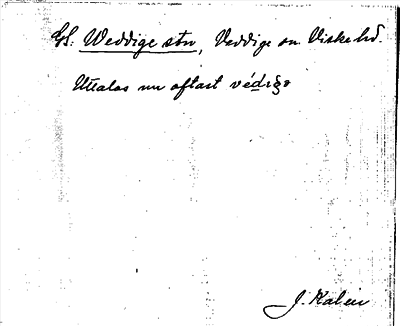 GS: Weddige stn, Veddige sn. Viske hd.
Uttalas nu oftast védigə
J. Kalén